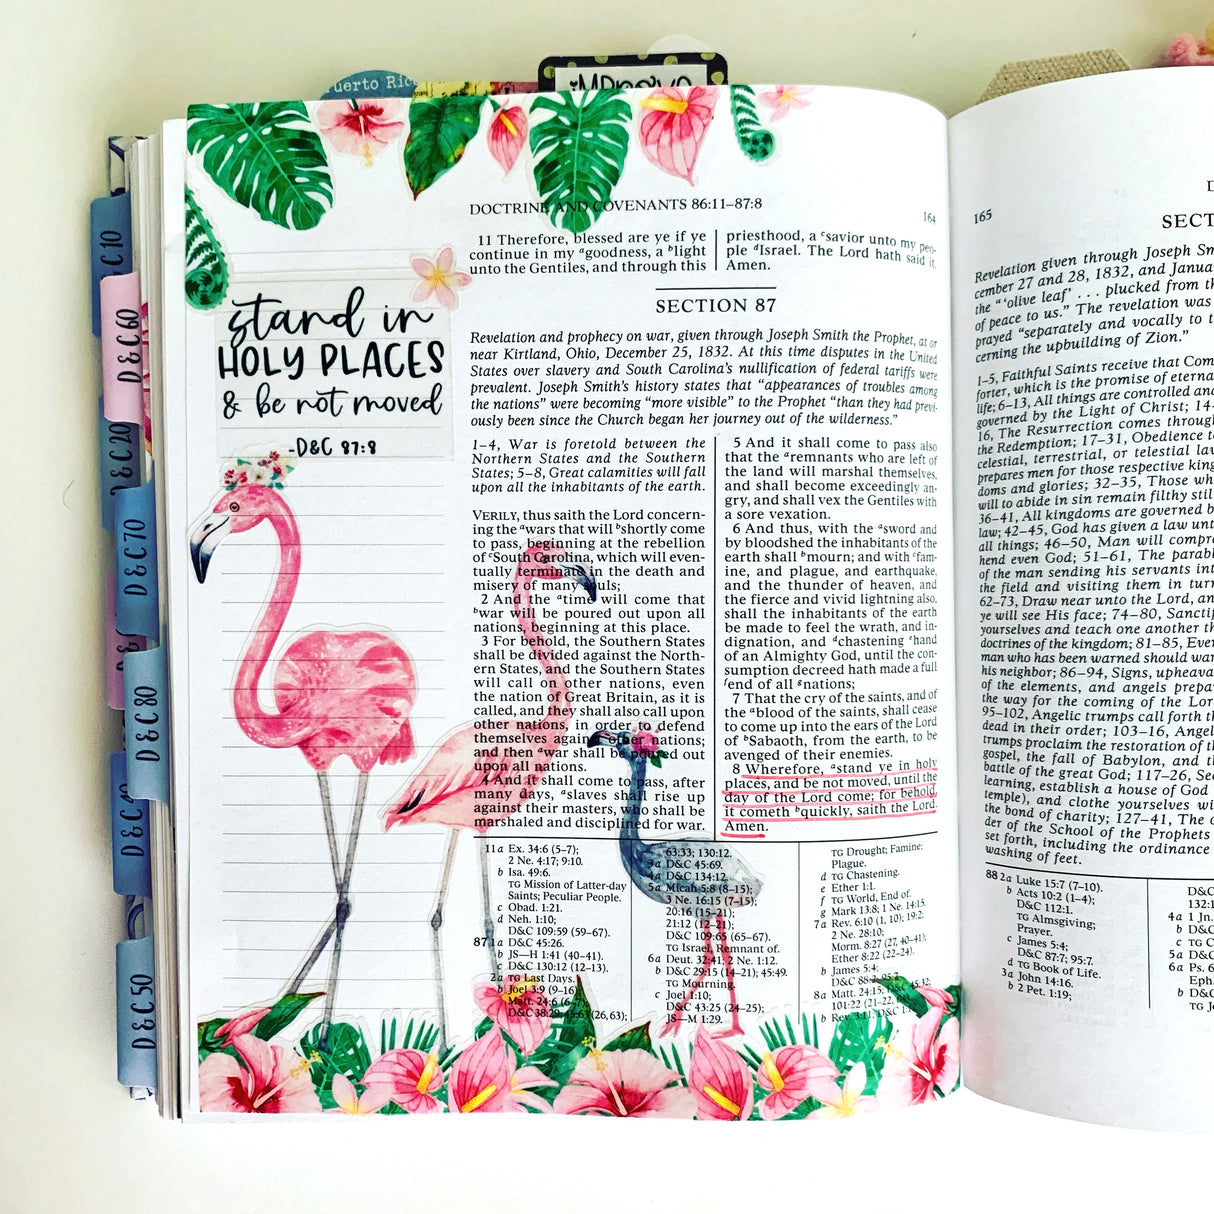 Puerto Ric
improve
D&C 10
D&C 60
D&C 20
D&C 70
D&C 80
D&C 40
D&C 50
stand in
HOLY PLACES
& be not moved
-D&C 87:8
DOCTRINE AND COVENANTS 86:11–87:8
164
11 Therefore, blessed are ye if ye
continue in my ᵃgoodness, a ᵇlight
unto the Gentiles, and through this
priesthood, a ᶜsavior unto my peo-
ple ᵈIsrael. The Lord hath said it.
Amen.
SECTION 87
Revelation and prophecy on war, given through Joseph Smith the Prophet, at or
near Kirtland, Ohio, December 25, 1832. At this time disputes in the United
States over slavery and South Carolina’s nullification of federal tariffs were
prevalent. Joseph Smith’s history states that “appearances of troubles among
the nations” were becoming “more visible” to the Prophet “than they had previ-
ously been since the Church began her journey out of the wilderness.”
1–4, War is foretold between the
Northern States and the Southern
States; 5–8, Great calamities will fall
upon all the inhabitants of the earth.
VERILY, thus saith the Lord concern-
ing the ᵃwars that will ᵇshortly come
to pass, beginning at the rebellion
of ᶜSouth Carolina, which will even-
tually terminate in the death and
misery of many souls;
2 And the ᵃtime will come that
ᵇwar will be poured out upon all
nations, beginning at this place.
3 For behold, the Southern States
shall be divided against the North-
ern States, and the Southern States
will call on other nations, even
the nation of Great Britain, as it is
called, and they shall also call upon
other nations, in order to defend
themselves against other nations;
and then ᵃwar shall be poured out
upon all nations.
4 And it shall come to pass, after
many days, ᵃslaves shall rise up
against their masters, who shall be
marshaled and disciplined for war.
5 And it shall come to pass also
that the ᵃremnants who are left of
the land will marshal themselves,
and shall become exceedingly an-
gry, and shall vex the Gentiles with
a sore vexation.
6 And thus, with the ᵃsword and
by bloodshed the inhabitants of the
earth shall ᵇmourn; and with ᶜfam-
ine, and plague, and earthquake,
and the thunder of heaven, and
the fierce and vivid lightning also,
shall the inhabitants of the earth
be made to feel the wrath, and in-
dignation, and ᵈchastening ᵉhand
of an Almighty God, until the con-
sumption decreed hath made a full
ᶠend of all ᵍnations;
7 That the cry of the saints, and of
the ᵃblood of the saints, shall cease
to come up into the ears of the Lord
of ᵇSabaoth, from the earth, to be
avenged of their enemies.
8 Wherefore, ᵃstand ye in holy
places, and be not moved, until the
day of the Lord come; for behold,
it cometh ᵇquickly, saith the Lord.
Amen.
11a Ex. 34:6 (5–7);
2 Ne. 4:17; 9:10.
b Isa. 49:6.
TG Mission of Latter-day
Saints; Peculiar People.
c Obad. 1:21.
d Neh. 1:10;
D&C 109:59 (59–67).
87 1a D&C 45:26.
b JS—H 1:41 (40–41).
c D&C 130:12 (12–13).
2a TG Last Days.
b Joel 3:9 (9–16);
Matt. 24:6 (6–7);
D&C 38:29; 45:63 (26, 63);
63:33; 130:12.
3a D&C 45:69.
4a D&C 134:12.
5a Micah 5:8 (8–15);
3 Ne. 16:15 (7–15);
20:16 (15–21);
21:12 (12–21);
D&C 109:65 (65–67).
TG Israel, Remnant of.
6a Deut. 32:41; 2 Ne. 1:12.
b D&C 29:15 (14–21); 45:49.
TG Mourning.
c Joel 1:10;
D&C 43:25 (24–25);
JS—M 1:29.
TG Drought; Famine;
Plague.
d TG Chastening.
e Ether 1:1.
f TG World, End of.
g Mark 13:8; 1 Ne. 14:15.
7a Rev. 6:10 (1, 10); 19:2;
2 Ne. 28:10;
Morm. 8:27 (27, 40–41);
Ether 8:22 (22–24).
b James 5:4;
D&C 88:2; 95:7.
8a Matt. 24:15; 45:32;
101:22 (21–22,
b Rev. 3:11; D&C
165
SECT
Revelation given through Joseph Sm
cember 27 and 28, 1832, and Janua
the “‘olive leaf’ . . . plucked from th
of peace to us.” The revelation was
prayed “separately and vocally to t
cerning the upbuilding of Zion.”
1–5, Faithful Saints receive that Com
forter, which is the promise of eterna
life; 6–13, All things are controlled and
governed by the Light of Christ; 14–
16, The Resurrection comes through
the Redemption; 17–31, Obedience to
celestial, terrestrial, or telestial law
prepares men for those respective king
doms and glories; 32–35, Those who
will to abide in sin remain filthy still
36–41, All kingdoms are governed by
law; 42–45, God has given a law unto
all things; 46–50, Man will compre
hend even God; 51–61, The parabl
of the man sending his servants int
the field and visiting them in turn
62–73, Draw near unto the Lord, an
ye will see His face; 74–80, Sanctif
yourselves and teach one another th
doctrines of the kingdom; 81–85, Ever
man who has been warned should war
his neighbor; 86–94, Signs, upheava
of the elements, and angels prepar
the way for the coming of the Lor
95–102, Angelic trumps call forth th
dead in their order; 103–16, Angel
trumps proclaim the restoration of th
gospel, the fall of Babylon, and th
battle of the great God; 117–26, See
learning, establish a house of God
temple), and clothe yourselves wi
the bond of charity; 127–41, The o
der of the School of the Prophets
set forth, including the ordinance
washing of feet.
88 2a Luke 15:7 (7–10).
b Acts 10:2 (1–4);
D&C 112:1.
TG Almsgiving;
Prayer.
c James 5:4;
D&C 87:7; 95:7.
d TG Book of Life.
3a John 14:16.
b 2 Pet. 1:19;
D&C
132:1
4a 1 Jn.
b D&C
c TG C
5a D&C
6a Ps. 6
Eph.
b D&C
TG J